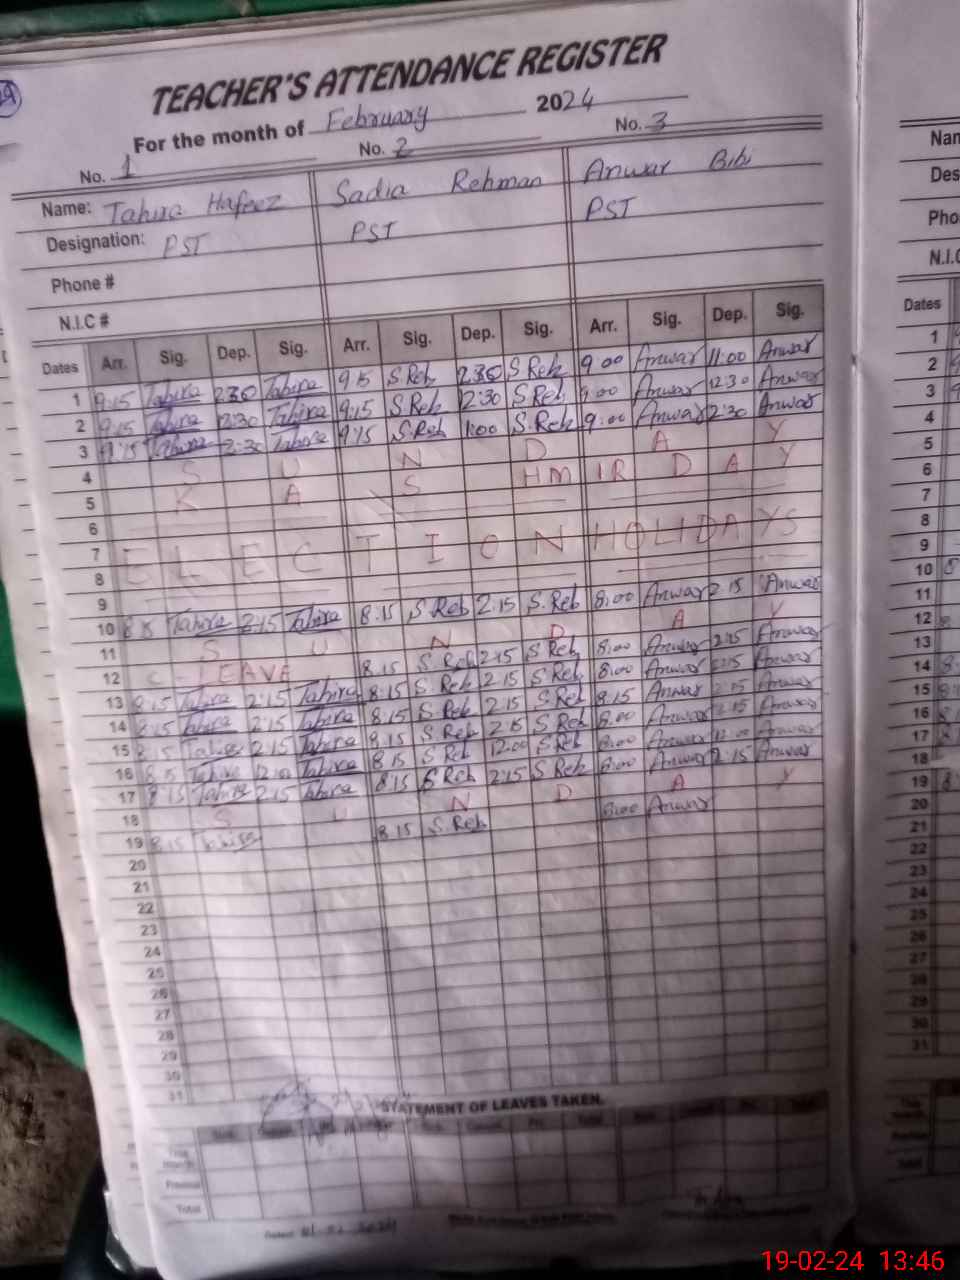 TEACHER'S ATTENDANCE REGISTER
For the month of February 2024
No. 1 No. 2 No. 3
Name: Tahira Hafeez Sadia Rehman Anwar Bibi
Designation: PST PST PST
Phone #
N.I.C #
Dates Arr. Sig. Dep. Sig. Arr. Sig. Dep. Sig. Arr. Sig. Dep. Sig.
1 9:15 Tahira 2:30 Tahira 9:15 S.Reh 2:30 S.Reh 9:00 Anwar 11:00 Anwar
2 9:15 Tahira 2:30 Tahira 9:15 S.Reh 2:30 S.Reh 9:00 Anwar 12:30 Anwar
3 9:15 Tahira 2:30 Tahira 9:15 S.Reh 1:00 S.Reh 9:00 Anwar 2:30 Anwar
4 S U N D A Y
5 K A S HM IR D A Y
6
7 E L E C T I O N HOLIDAYS
8
9
10 8:15 Tahira 2:15 Tahira 8:15 S.Reh 2:15 S.Reh 8:00 Anwar 2:15 Anwar
11 S U N D A Y
12 C - LEAVE 8:15 S.Reh 2:15 S.Reh 8:00 Anwar 2:15 Anwar
13 8:15 Tahira 2:15 Tahira 8:15 S.Reh 2:15 S.Reh 8:00 Anwar 2:15 Anwar
14 8:15 Tahira 2:15 Tahira 8:15 S.Reh 2:15 S.Reh 8:15 Anwar 2:15 Anwar
15 8:15 Tahira 2:15 Tahira 8:15 S.Reh 2:15 S.Reh 8:00 Anwar 2:15 Anwar
16 8:15 Tahira Tahira 8:15 S.Reh 12:00 S.Reh 8:00 Anwar 12:00 Anwar
17 8:15 Tahira 2:15 Tahira 8:15 S.Reh 2:15 S.Reh 8:00 Anwar 2:15 Anwar
18 S U N D A Y
19 8:15 Tahira 8:15 S.Reh 8:00 Anwar
20
21
22
23
24
25
26
27
28
29
30
31
STATEMENT OF LEAVES TAKEN.
This Month
Previous
Total
Nan
Des
Pho
N.I.C
Dates
1
2
3
4
5
6
7
8
9
10
11
12
13
14
15
16
17
18
19
20
21
22
23
24
25
26
27
28
29
30
31
19-02-24 13:46